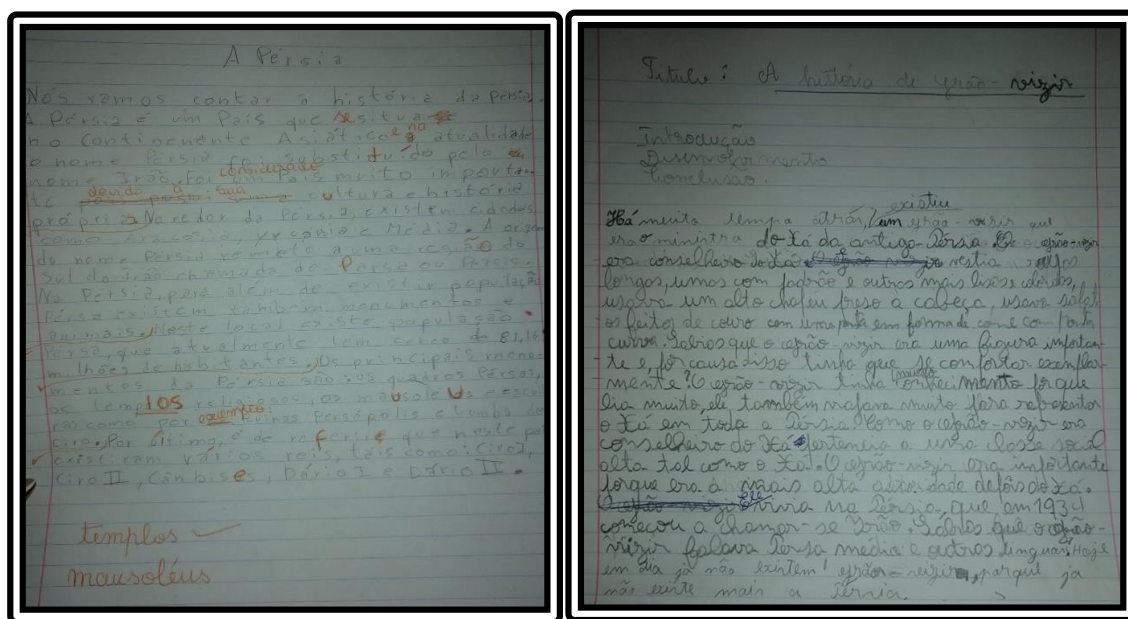 A Pérsia
Nós vamos contar a história da Pérsia.
A Pérsia é um País que se situa
no continente Asiático e na atualidade
o nome Pérsia foi substituído pelo
nome Irão. Foi considerado um País muito importan-
te devido à sua cultura e história
própria. No redor da Pérsia, existem cidades
como e Média. A origem
do nome Pérsia remete a uma região do
Sul do Irão chamada de Parsa ou Persis.
Na Pérsia, para além de existir população
Persa existem também monumentos e
animais. Neste local existe população
Persa, que atualmente tem cerca de 81,16
milhões de habitantes. Os principais monu-
mentos da Pérsia são: os quadros Persas,
os templos religiosos, os mausoléus e
como por exemplo: ruínas Persépolis e tumba de
Ciro. Por último, é de referir que neste
existiram vários reis, tais como: Ciro I,
Ciro II, Cambises, Dário I e Dário II.
templos
mausoléus
Titulo: A história de grão-vizir
Introdução
Disenvolvimento
Conclusão.
Há muito tempo atrás, existiu um grão-vizir que
era o ministro do Xá da antiga Pérsia. O grão-vizir
era conselheiro do Xá vestia
longos, uns com padrão e outros mais lisos e
usava um alto chapeu preso a cabeça, usava sapat-
os feitos de couro com uma ponta em forma de cone com ponta
curva. Sabias que o grão-vizir era uma figura importan-
te e por causa disso tinha que se comportar exemplar-
mente? O grão-vizir tinha muito conhecimento porque
lia muito, ele também viajava muito para representar
o Xá em toda a Pérsia. Como o grão-vizir era
conselheiro do Xá pertencia a uma classe social
alta tal como o Xá. O grão-vizir era importante
porque era a mais alta autoridade depois do Xá.
Ele vivia na Pérsia, que, em 1934
começou a chamar-se Irão. Sabias que o grão-
vizir falava Persa média e outras linguas? Hoje
em dia já não existem grão-vizir, porque já
não existe mais a Pérsia.